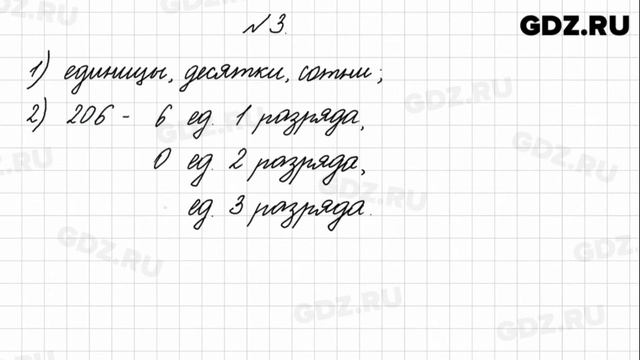 GDZ.RU
№3.
1) единицы, десятки, сотни;
2) 206 - 6 ед. 1 разряда,
0 ед. 2 разряда,
ед. 3 разряда.
GDZ.RU
GDZ.RU
GDZ.RU
GDZ.RU
GDZ.RU
GDZ.RU